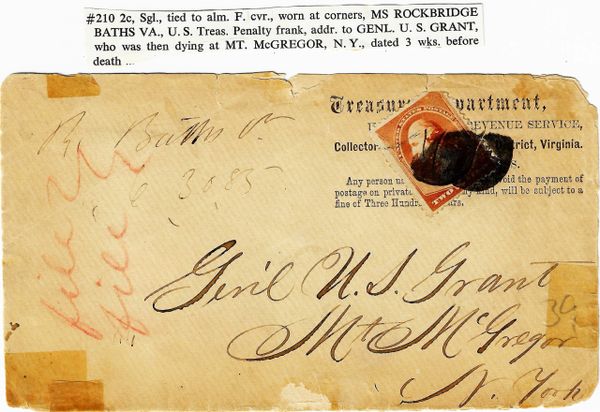 #210 2c, Sgl., tied to alm. F. cvr., worn at corners, MS ROCKBRIDGE
BATHS VA., U. S. Treas. Penalty frank, addr. to GENL. U. S. GRANT,
who was then dying at MT. McGREGOR, N. Y., dated 3 wks. before
death ...
Treasur partment,
EVENUE SERVICE,
Collector trict, Virginia.
Any person void the payment of
postage on privat kind, will be subject to a
fine of Three Hund rs.
UNITED STATES POSTAGE
TWO
R. Baths V
3085
file
file
Gen'l U. S. Grant
Mt McGregor
N. York